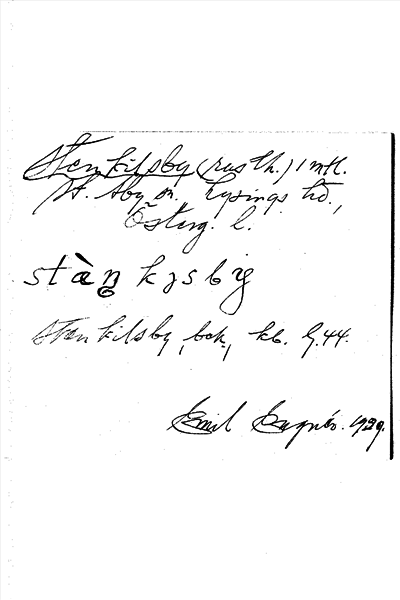 Stenkilsby (rusth.) 1 mtl.
St. Åby sn. Lysings hd.,
Österg. l.
stàn kɿsby
Stenkilsby, bok, kb. G. 44.
Emil 1929.